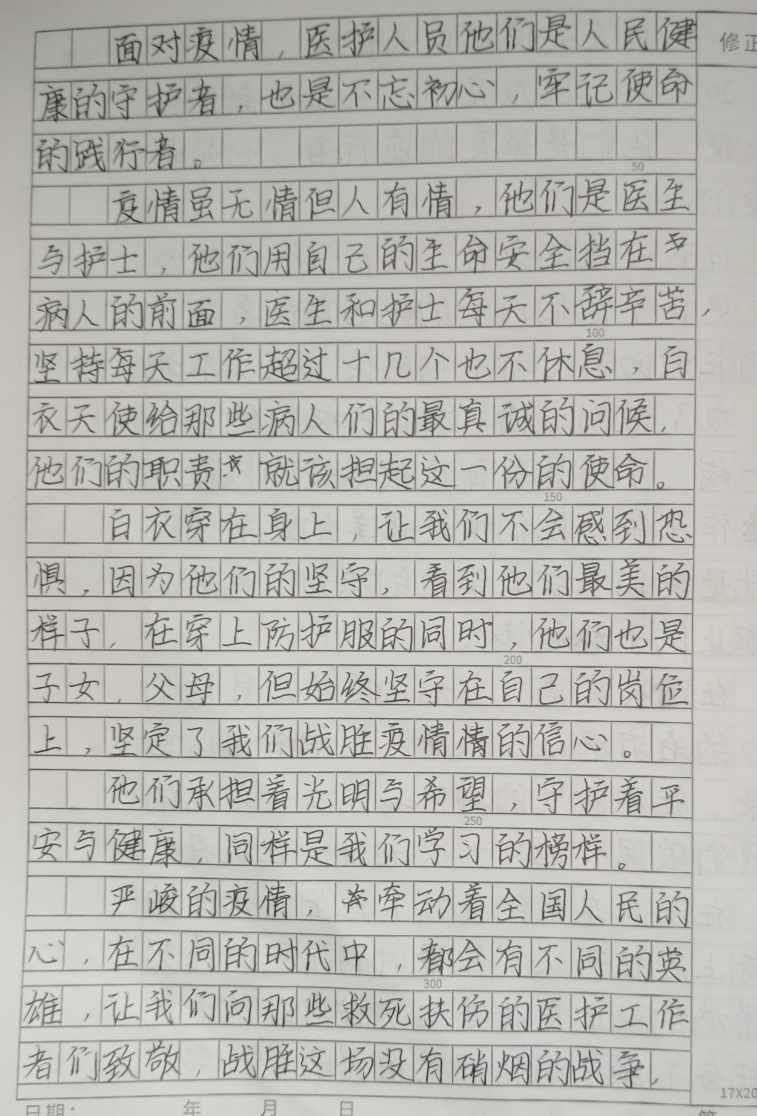 面对疫情，医护人员他们是人民健
修正
康的守护者，也是不忘初心，牢记使命
的践行者。
50
疫情虽无情但人有情，他们是医生
与护士，他们用自己的生命安全挡在
病人的前面，医生和护士每天不辞辛苦，
100
坚持每天工作超过十几个也不休息，白
衣天使给那些病人们的最真诚的问候，
他们的职责 就该担起这一份的使命。
150
白衣穿在身上，让我们不会感到恐
惧，因为他们的坚守，看到他们最美的
样子，在穿上防护服的同时，他们也是
200
子女，父母，但始终坚守在自己的岗位
上，坚定了我们战胜疫情情的信心。
他们承担着光明与希望，守护着平
250
安与健康，同样是我们学习的榜样。
严峻的疫情，牵动着全国人民的
心，在不同的时代中，都会有不同的英
300
雄，让我们向那些救死扶伤的医护工作
者们致敬，战胜这场没有硝烟的战争，
17X20
日期： 年 月 日